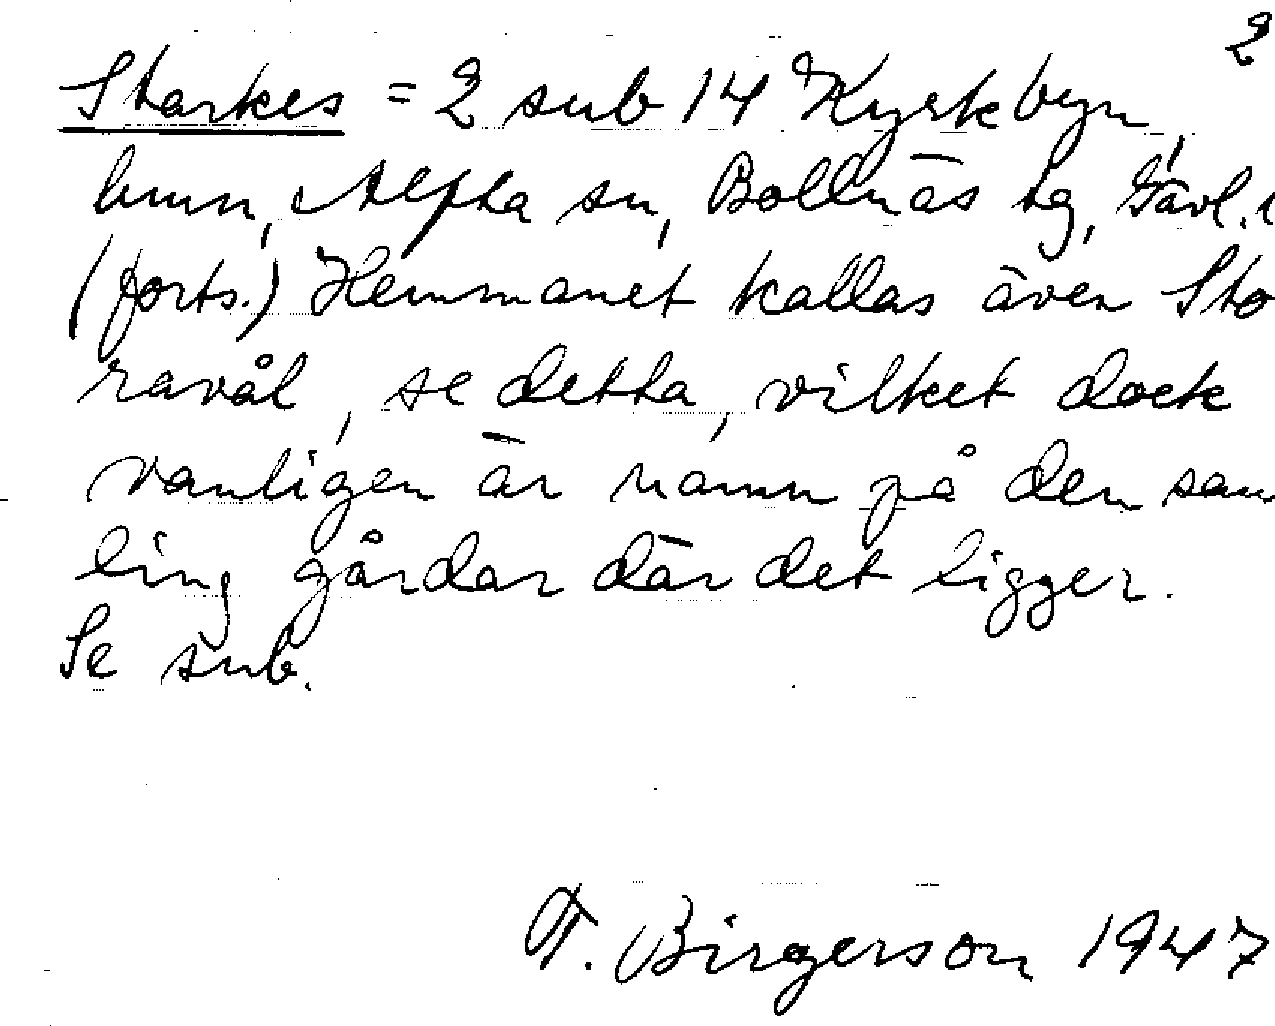 2
Starkes = 2 sub 14 Kyrkbyn,
bmn, Alfta sn, Bollnäs tg, Gävl. l
(forts.) Hemmanet kallas även Sto
ravål, se detta, vilket dock
vanligen är namn på den sam
ling gårdar där det ligger.
Se sub.
T. Birgerson 1947